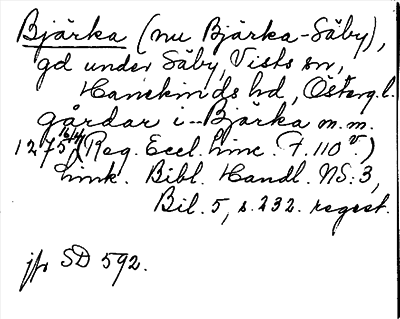 Bjärka (nu Bjärka-Säby),
gd under Säby, Vists sn,
Hanekinds hd, Östergl.
gårdar i Bjärka m.m.
1275 16/4 (Reg. Eccl. Linc. F. 110 v.)
Link. Bibl. Handl. NS: 3,
Bil. 5, s. 232. regest.
jfr SD 592.